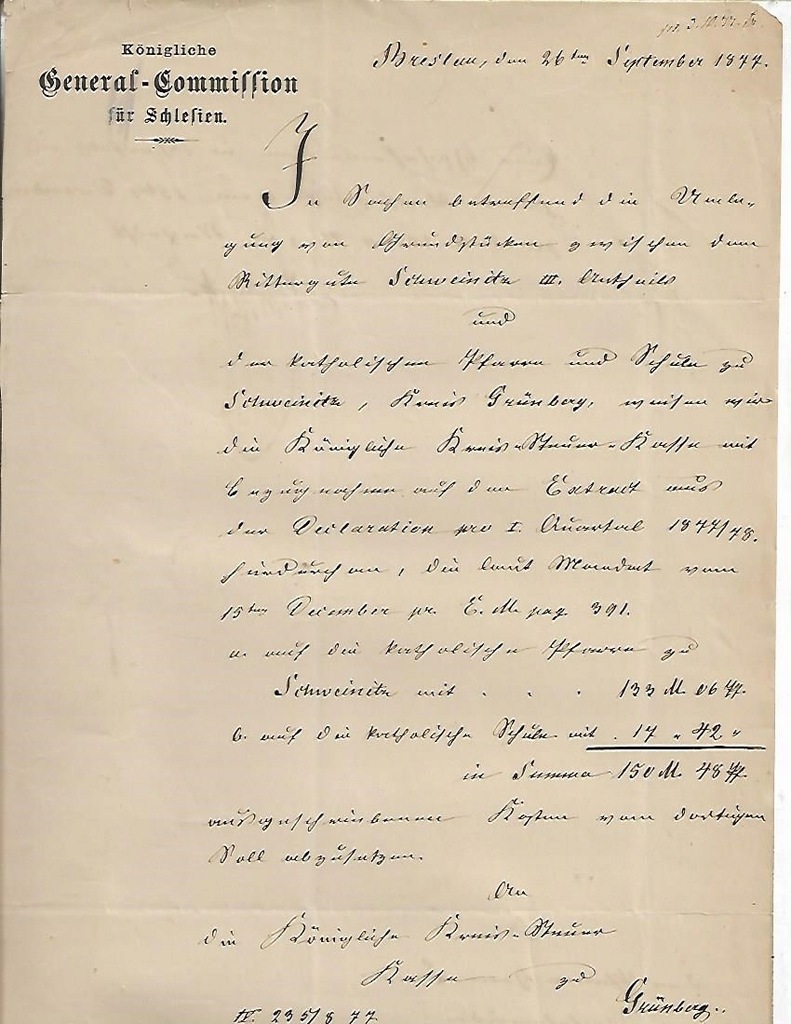 Königliche
General-Commission
für Schlesien.
Breslau, den 26ten September 1877.
In Sachen betreffend die Umle-
gung von Grundstücken zwischen dem
Rittergute Schweinitz III. Antheils
und
der katholischen Pfarre und Schule zu
Schweinitz, Kreis Grünberg, weisen wir
die Königliche Kreis-Steuer-Kasse mit
Bezugnahme auf den Extract aus
der Declaration pro I. Quartal 1877/78.
hierdurch an, die laut Mandat vom
15ten December pr. E. M. pag. 391.
a. auf die katholische Pfarre zu
Schweinitz mit . . . 133 M. 06 Pf.
b. auf die katholische Schule mit . 17 " 42 "
in Summa 150 M. 48 Pf.
ausgeschriebenen Kosten vom dortigen
Soll abzusetzen.
An
die Königliche Kreis-Steuer
Kasse zu
Grünberg.
IV. 235/8 77